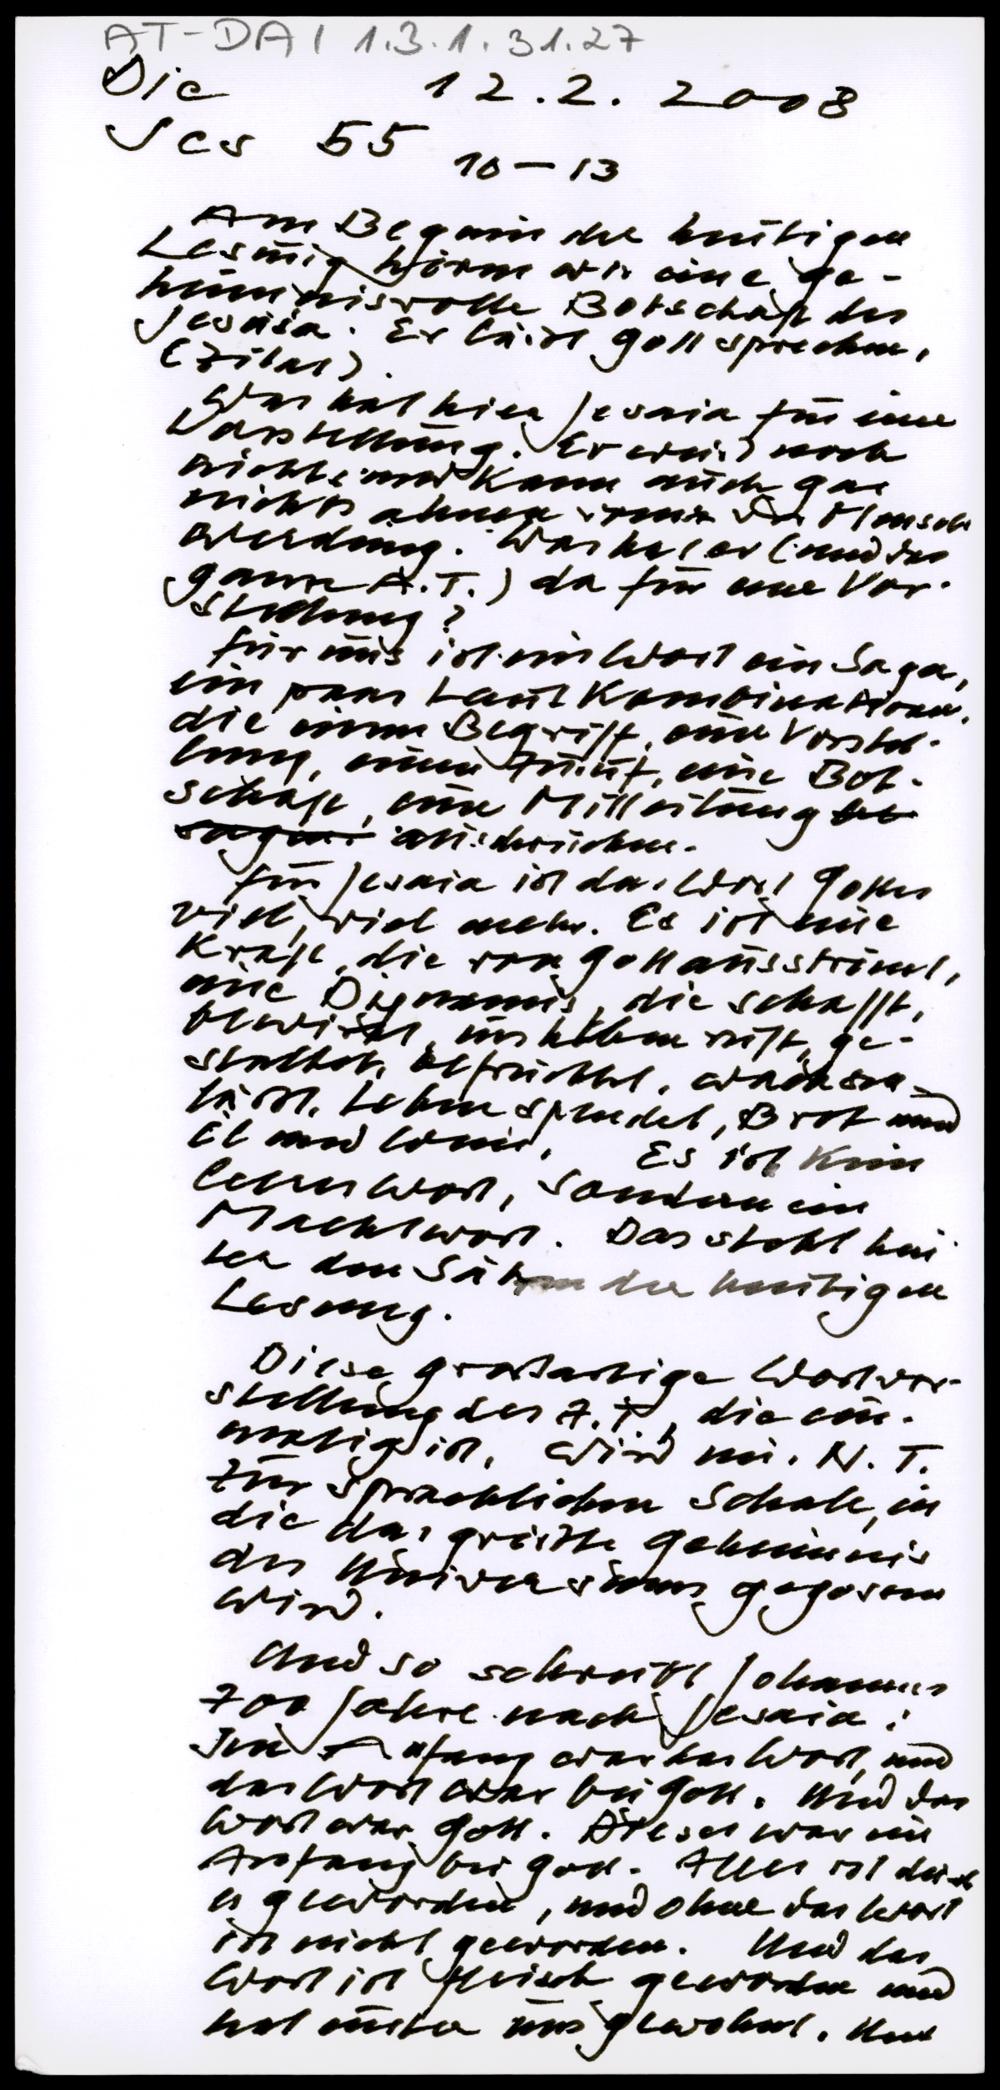 AT-DAI 1.3.1.31.27
Die 12.2.2008
Jes 55 10-13
Am Beginn der heutigen
Lesung hören wir eine ge-
heimnisvolle Botschaft des
Jesaia. Er läßt Gott sprechen,
(Zitat).
Was hat hier Jesaia für eine
Vorstellung. Er weiß noch
nichts und kann auch gar
nichts ahnen von der Mensch
werdung. Was hat er (und das
ganze A.T.) da für eine Vor-
stellung?
Für uns ist ein Wort ein
ein paar Laut Kombinationen,
die einen Begriff, eine Vorstel-
lung, einen Zuruf, eine Bot-
schaft, eine Mitteilung
ausdrücken.
Für Jesaia ist das Wort Gottes
viel, viel mehr. Es ist eine
Kraft, die von Gott ausströmt,
eine Dynamis, die schafft,
bewirkt, ins Leben ruft, ge-
staltet, befruchtet, wachsen
läßt, Leben spendet, Brot und
Öl und Wein. Es ist kein
leeres Wort, sondern ein
Machtwort. Das steht hin
ter den Sätzen der heutigen
Lesung.
Diese großartige Wortvor-
stellung des A.T., die ein-
malig ist, wird im N.T.
zur sprachlichen Schale, in
die das größte Geheimnis
des Universums gegossen
wird.
Und so schreibt Johannes
700 Jahre nach Jesaia:
Im Anfang war das Wort, und
das Wort war bei Gott. Und das
Wort war Gott. Dieses war im
Anfang bei Gott. Alles ist durch
es geworden, und ohne das Wort
ist nichts geworden. Und das
Wort ist Fleisch geworden und
hat unter uns gewohnt. Und